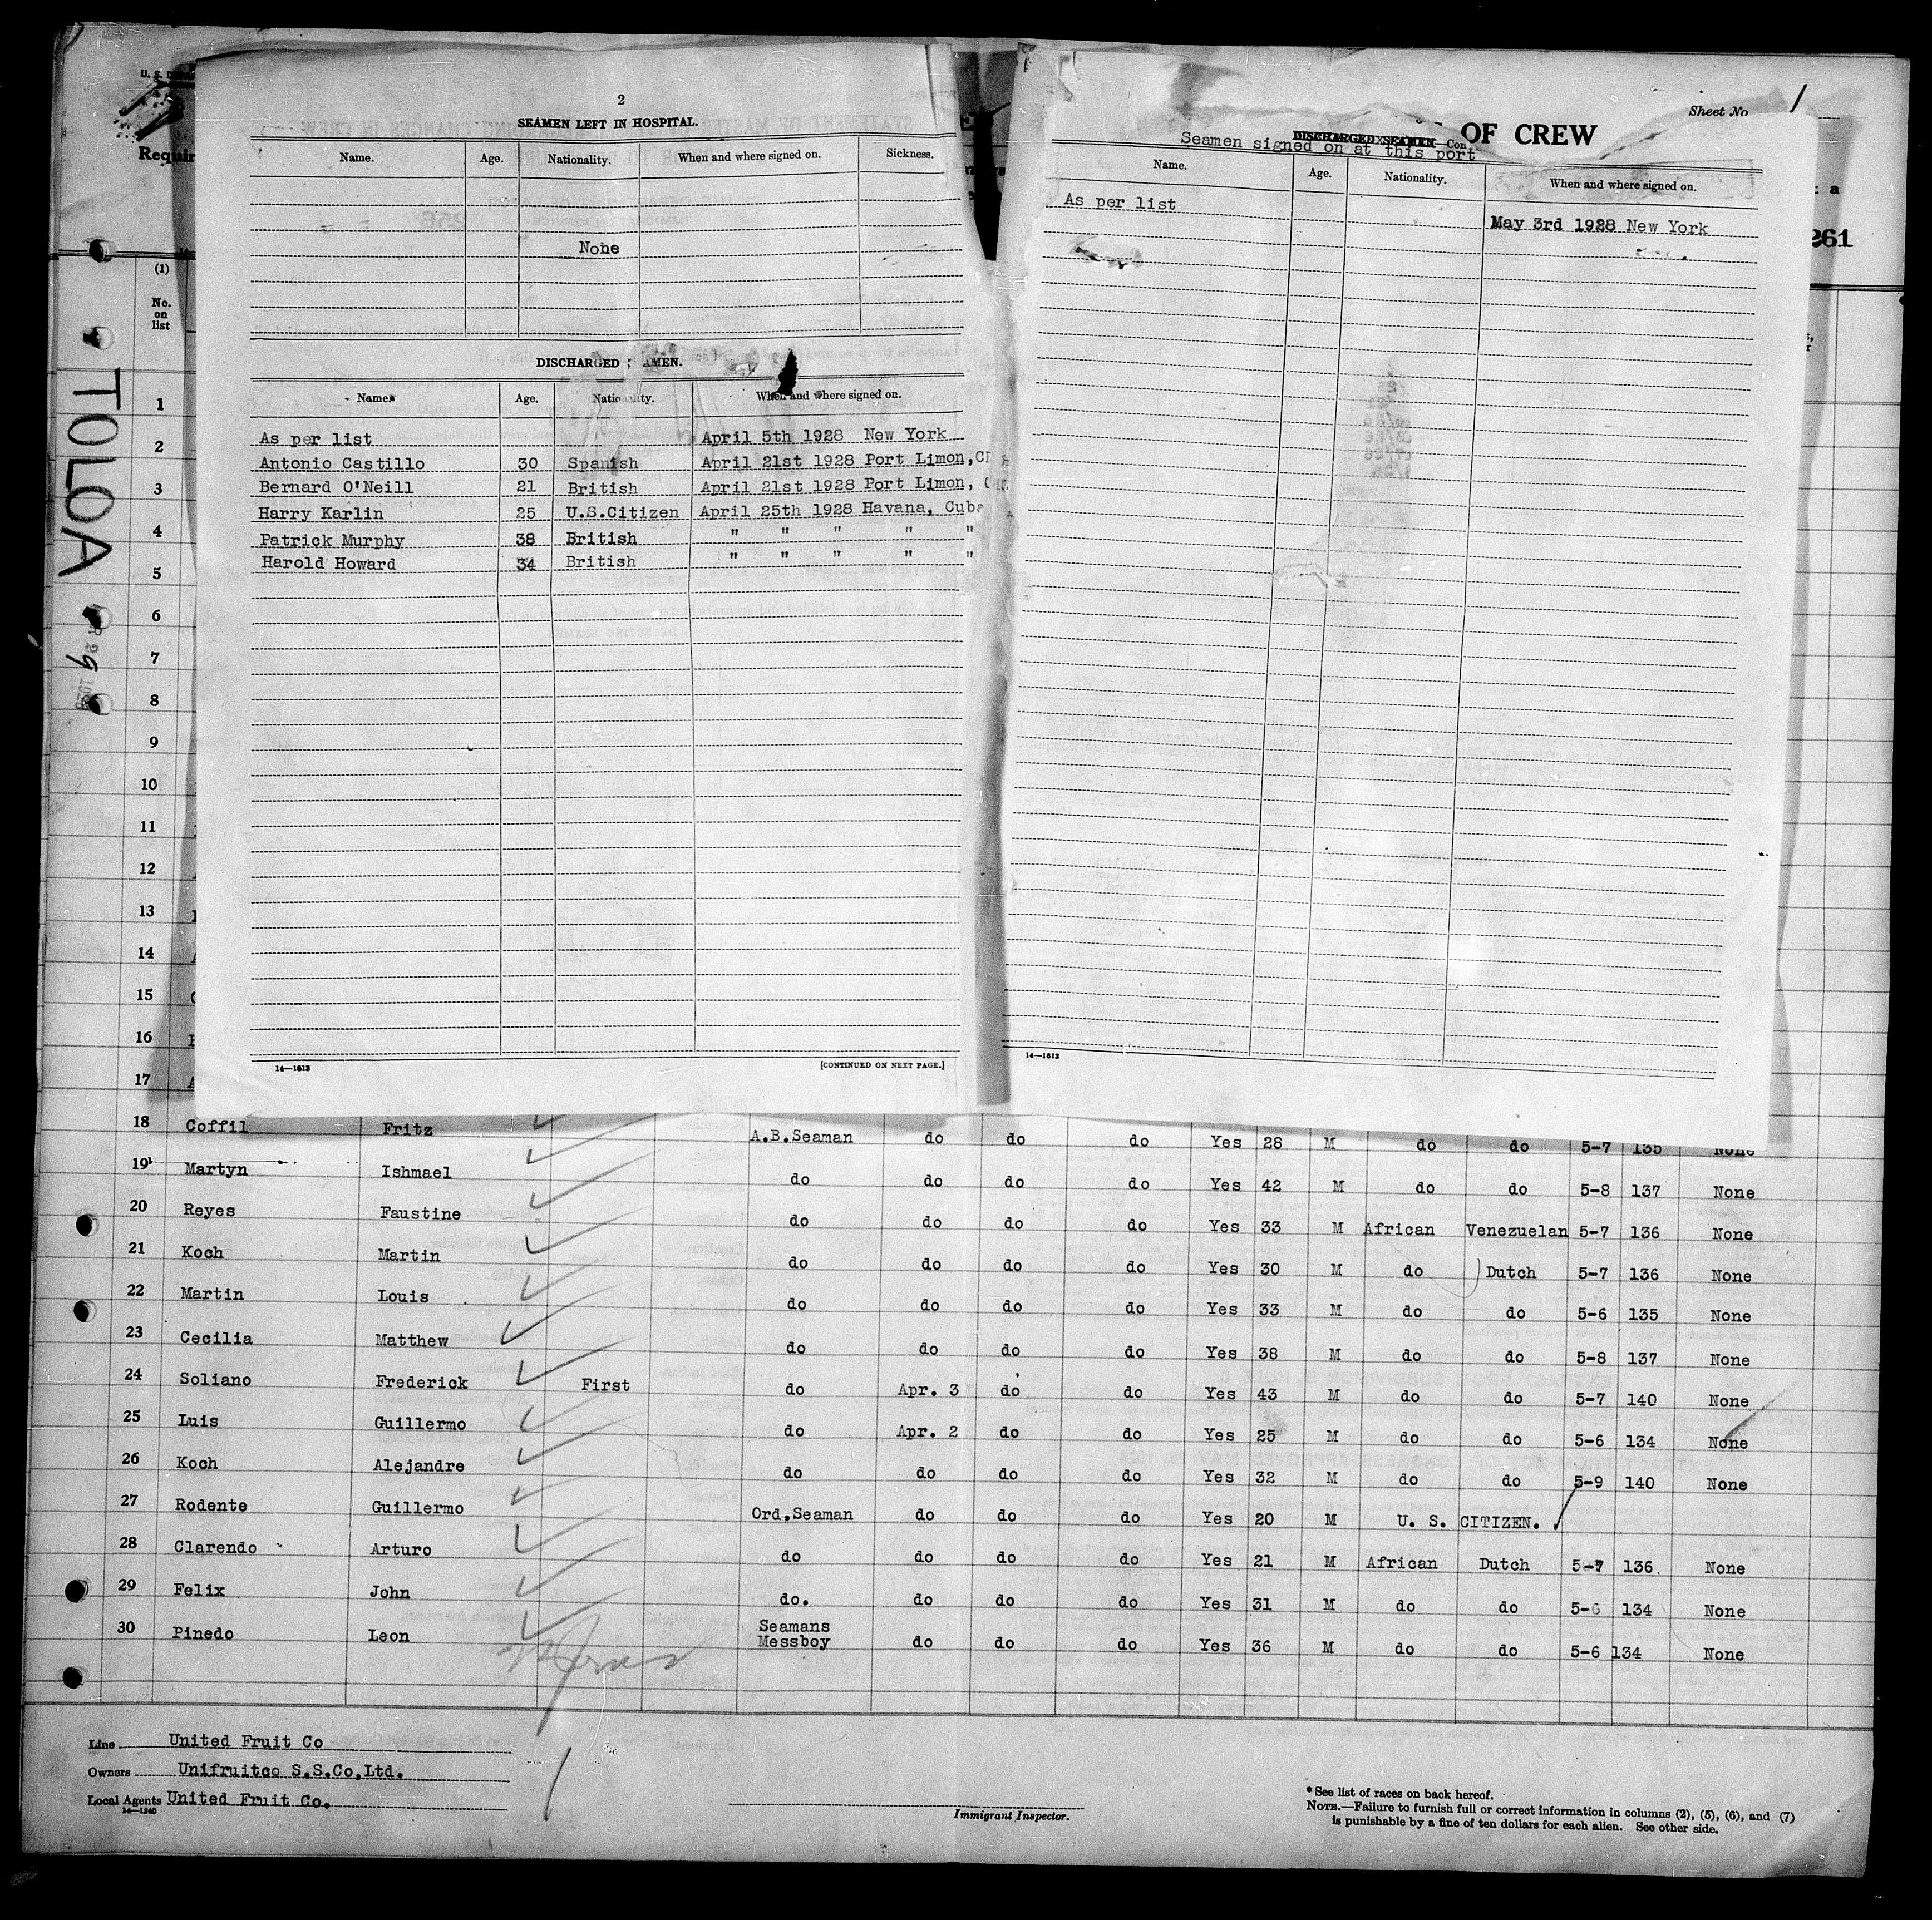 2
SEAMEN LEFT IN HOSPITAL.
Name. Age. Nationality. When and where signed on. Sickness.
None
DISCHARGED AMEN.
Name. Age. Nationality. When and where signed on.
As per list April 5th 1928 New York
Antonio Castillo 30 Spanish April 21st 1928 Port Limon,
Bernard O'Neill 21 British April 21st 1928 Port Limon,
Harry Karlin 25 U.S.Citizen April 25th 1928 Havana, Cuba
Patrick Murphy 38 British " " " " "
Harold Howard 34 British " " " " "
14—1613 [CONTINUED ON NEXT PAGE.]
Sheet No. 1
OF CREW
DISCHARGED SEAMEN—Con
Seamen signed on at this port
Name. Age. Nationality. When and where signed on.
As per list
May 3rd 1928 New York
14—1613
U. S.
Requir
a
261
(1)
No. on list
TOLOA
1
2
3
4
5
6
7
8
9
10
11
12
13
14
15
16
17
18 Coffil Fritz A.B.Seaman do do do Yes 28 M do do 5-7 135 None
19 Martyn Ishmael do do do do Yes 42 M do do 5-8 137 None
20 Reyes Faustine do do do do Yes 33 M African Venezuelan 5-7 136 None
21 Koch Martin do do do do Yes 30 M do Dutch 5-7 136 None
22 Martin Louis do do do do Yes 33 M do do 5-6 135 None
23 Cecilia Matthew do do do do Yes 38 M do do 5-8 137 None
24 Soliano Frederick First do Apr. 3 do do Yes 43 M do do 5-7 140 None
25 Luis Guillermo do Apr. 2 do do Yes 25 M do do 5-6 134 None
26 Koch Alejandre do do do do Yes 32 M do do 5-9 140 None
27 Rodente Guillermo Ord.Seaman do do do Yes 20 M U. S. CITIZEN.
28 Clarendo Arturo do do do do Yes 21 M African Dutch 5-7 136 None
29 Felix John do. do do do Yes 31 M do do 5-6 134 None
30 Pinedo Leon Seamans Messboy do do do Yes 36 M do do 5-6 134 None
Line United Fruit Co
Owners Unifruitco S.S.Co.Ltd.
Local Agents United Fruit Co.
14—1240
Immigrant Inspector.
* See list of races on back hereof.
NOTE.—Failure to furnish full or correct information in columns (2), (5), (6), and (7)
is punishable by a fine of ten dollars for each alien. See other side.